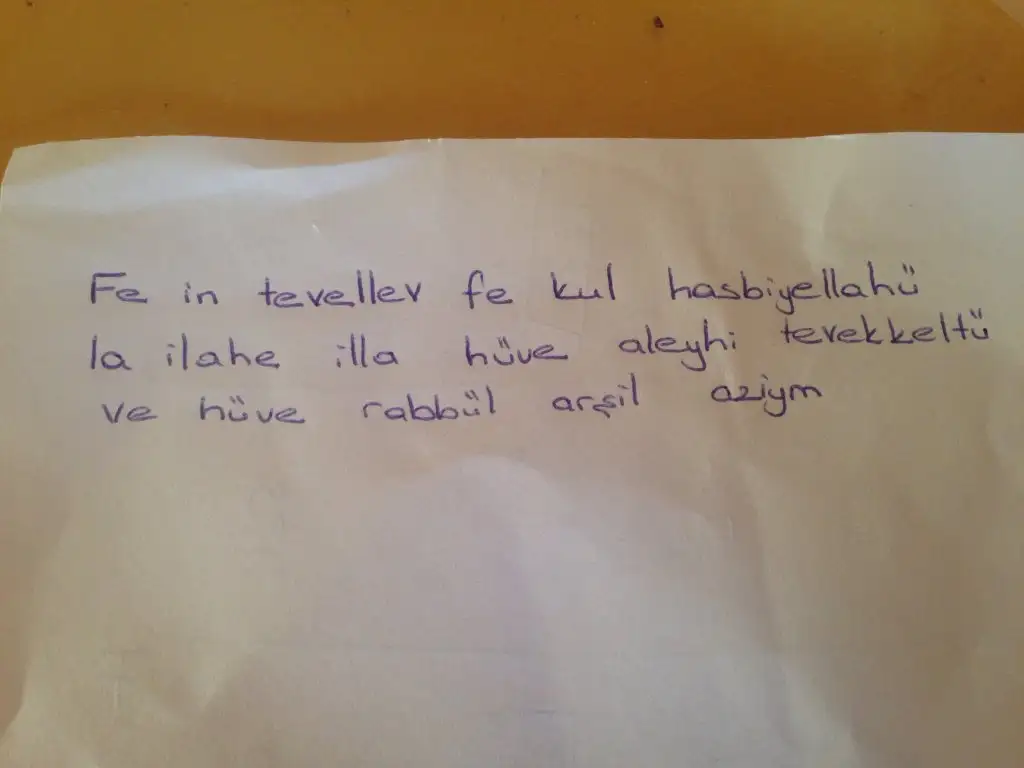 Fe in tevellev fe kul hasbiyellahü
la ilahe illa hüve aleyhi tevekkeltü
ve hüve rabbül arşil aziym